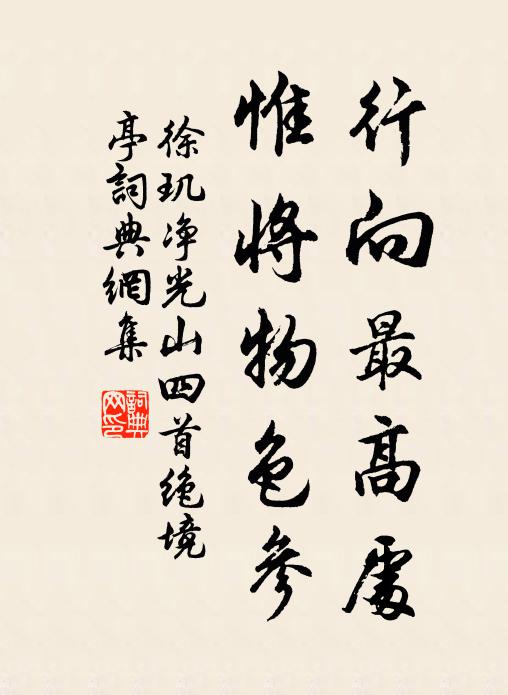 行向最高處
惟將物色參
徐玑净光山四首绝境
亭詞典網集
詞典
网印